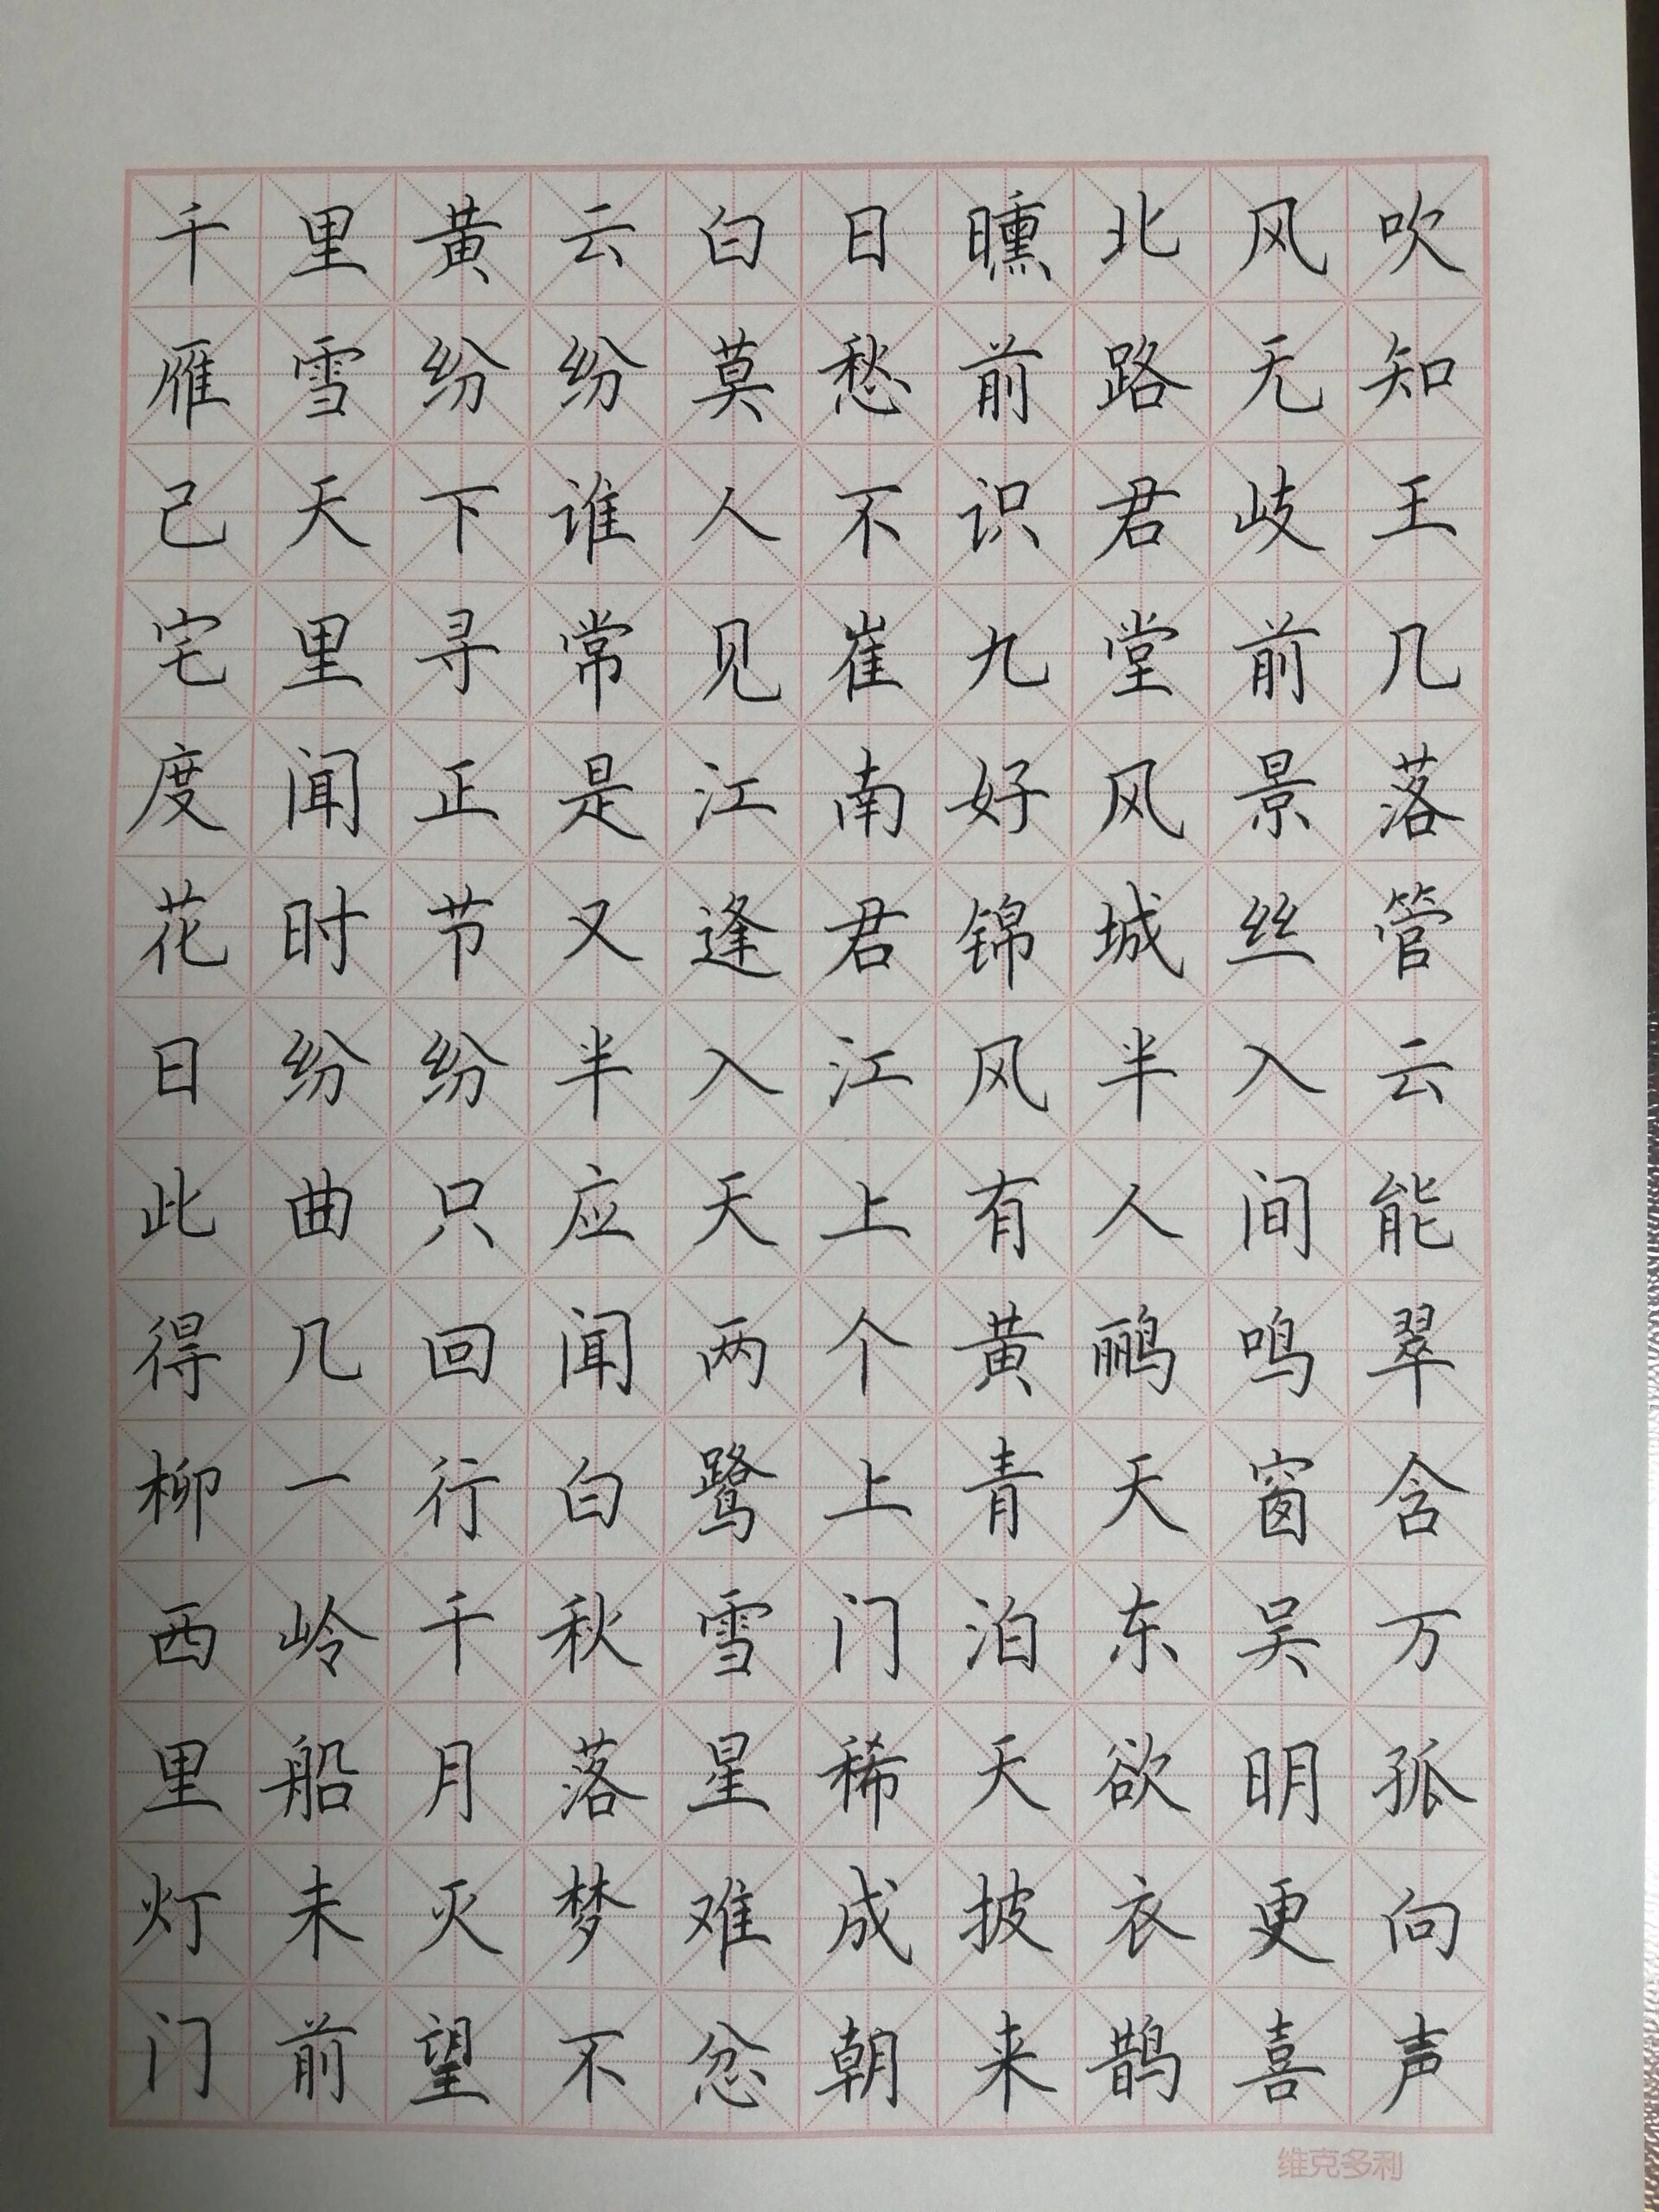 千里黄云白日曛北风吹
雁雪纷纷莫愁前路无知
己天下谁人不识君岐王
宅里寻常见崔九堂前几
度闻正是江南好风景落
花时节又逢君锦城丝管
日纷纷半入江风半入云
此曲只应天上有人间能
得几回闻两个黄鹂鸣翠
柳一行白鹭上青天窗含
西岭千秋雪门泊东吴万
里船月落星稀天欲明孤
灯未灭梦难成披衣更向
门前望不忿朝来鹊喜声
维克多利